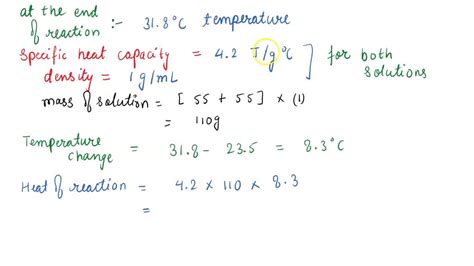 at the end
of reaction :- 31.8°C temperature
Specific heat capacity = 4.2 J/g°C
density = 1 g/mL
for both
solutions
mass of solution = [55 + 55] × (1)
= 110g
Temperature
change = 31.8 - 23.5 = 8.3°C
Heat of reaction = 4.2 × 110 × 8.3
=